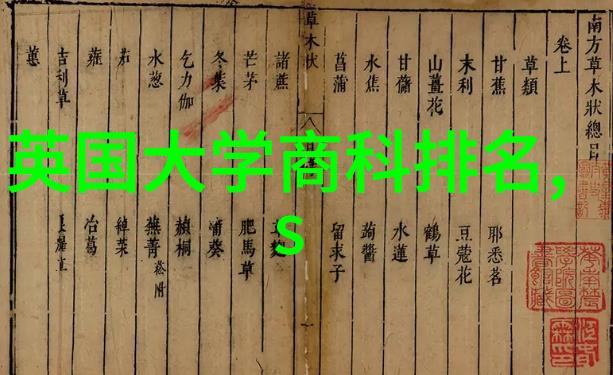 英国大学商科排名,
s
南方草木狀總目
卷上
草類
甘蕉 耶悉茗
末利 豆蔻花
山薑花 鶴草
甘藷 水蓮
水蕉 蒟醬
菖蒲 留求子
草木狀
諸蔗
芒茅 肥馬草
冬葉 蒲葵
乞力伽 赬桐
水葱 蕪菁 菘附
茄 綽菜
蕹 冶葛
吉利草
蕙